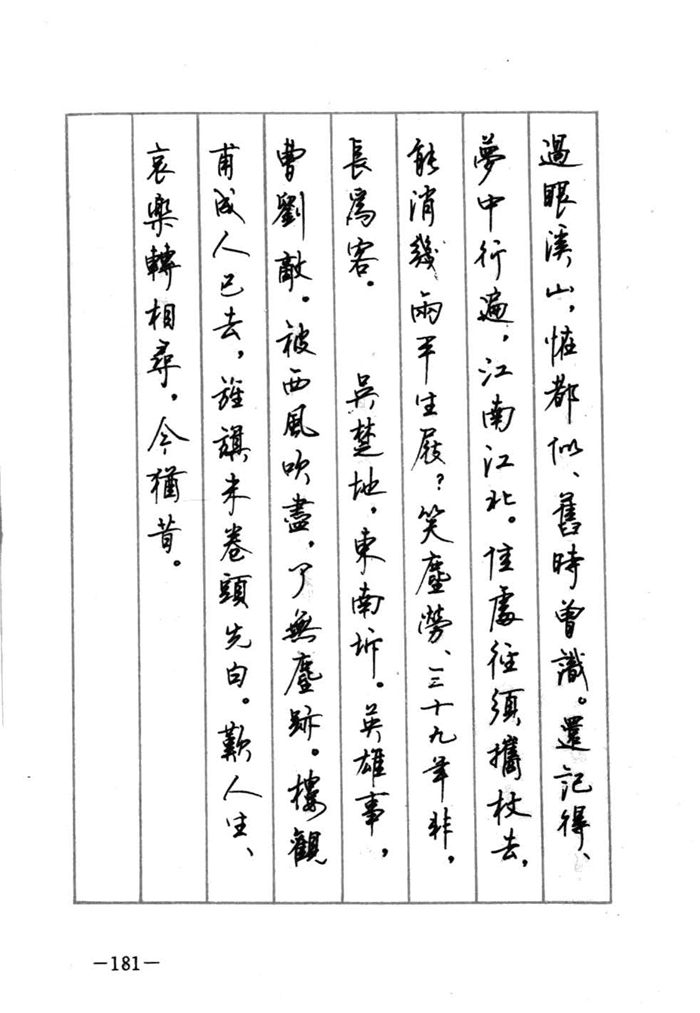 過眼溪山，恠都似、舊時曾識。還記得、
夢中行遍，江南江北。佳處徑須攜杖去，
能消幾兩平生屐？笑塵勞、三十九年非，
長爲客。　吳楚地，東南坼。英雄事，
曹劉敵。被西風吹盡，了無塵跡。樓觀
甫成人已去，旌旗未卷頭先白。歎人生、
哀樂轉相尋，今猶昔。
—181—